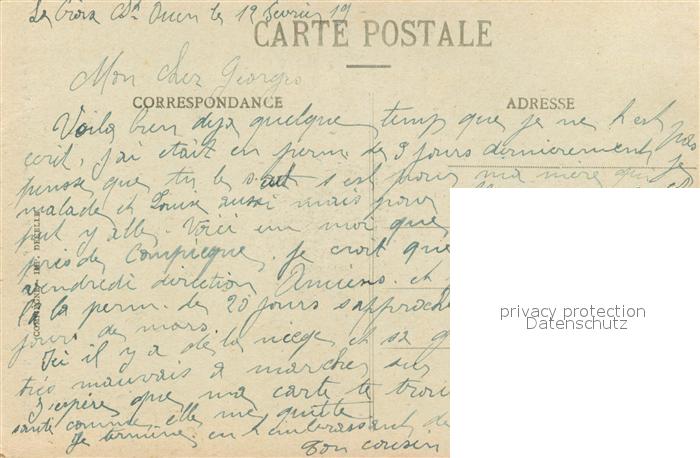 La Croix St Ouen le 19 février 19
CARTE POSTALE
Mon cher Georges
CORRESPONDANCE
ADRESSE
Voila bien deja quelque temp que je ne t'est pas
ecrit, j'ai etait en perm de 3 jours dernierement, je
pensse que tu le sait s'est pour ma mère qui
malade et Louise aussi mais pour
put y aller. Voici un moi que
pres de Compiegne. je croit que
vendredi direction Amiens. et
la perm. de 20 jours s'approche
jours de mars.
Ici il y a de la neige et sa g
tres mauvais a marcher sur
J'espère que ma carte te trou
santé comme elle me quitte
Je termine en t'embrassant de
Ton cousin
COMPIEGNE IMP. DECELLE
privacy protection
Datenschutz